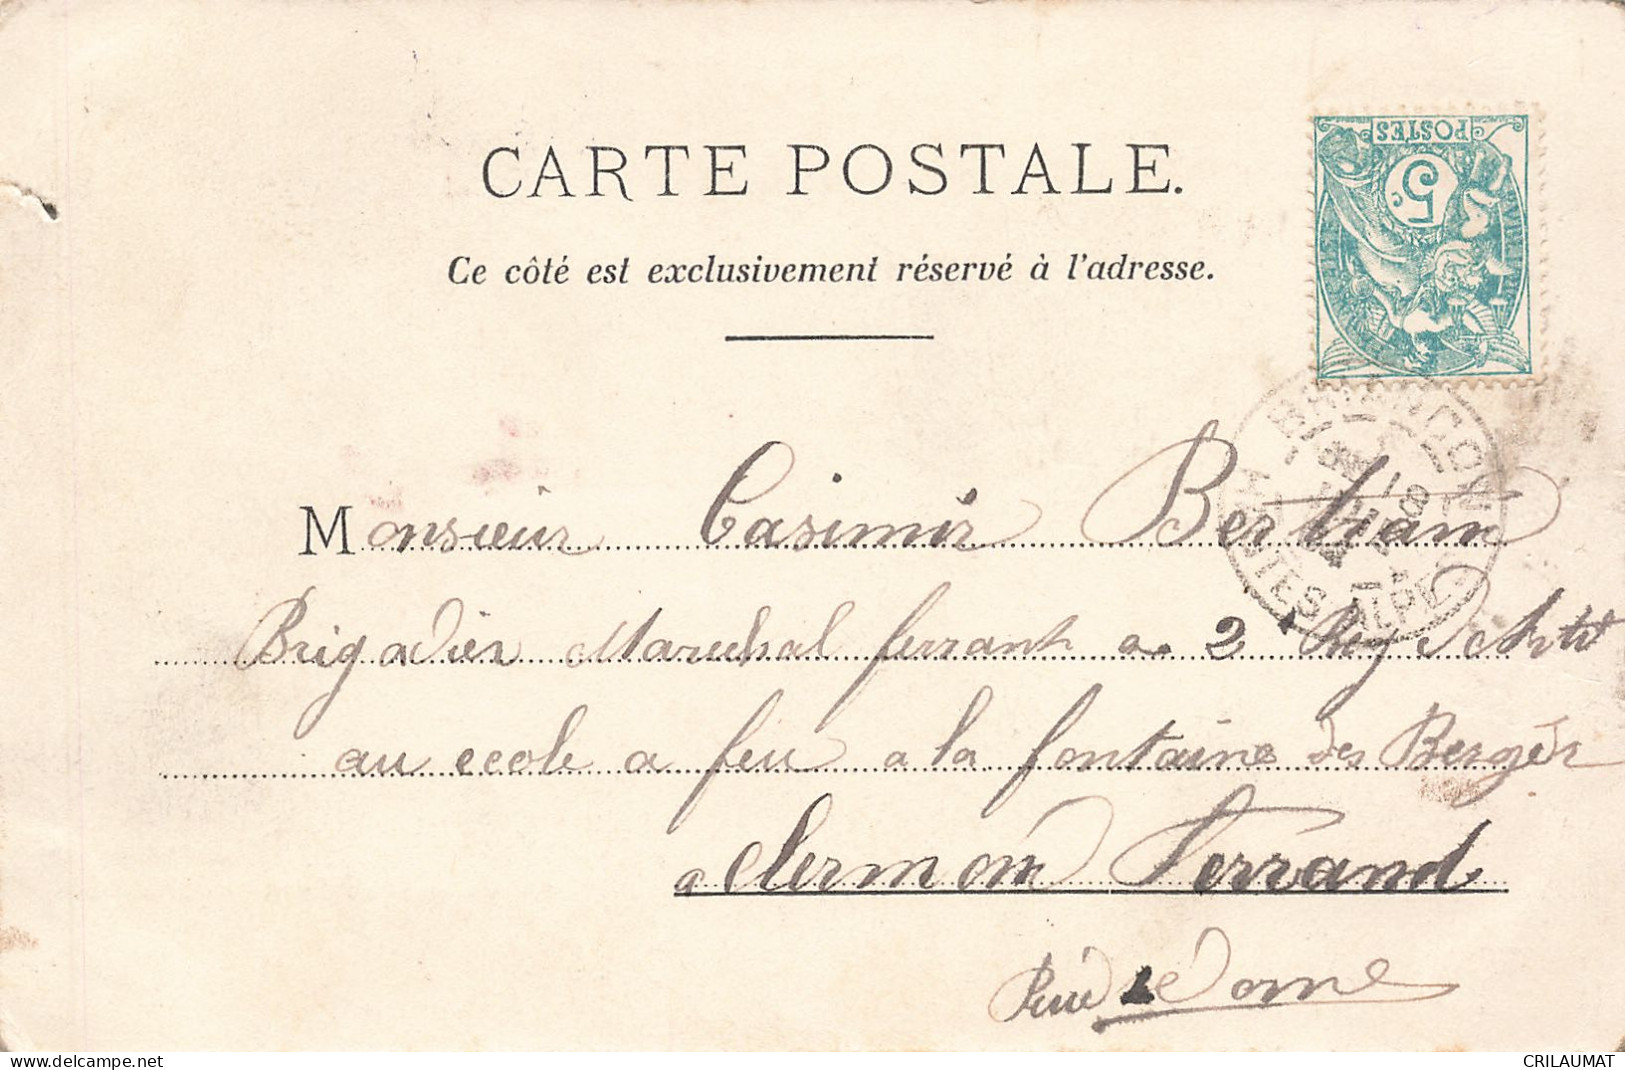 CARTE POSTALE.
Ce côté est exclusivement réservé à l'adresse.
POSTES
5c
BRIANCON
HAUTES-ALPES
Monsieur Casimir Bertram
Brigadier Marechal ferrant a 2 Reg d Art
au ecole a feu a la fontaine des Berger
a Clermon Ferrand
Puid de Dome
www.delcampe.net
CRILAUMAT